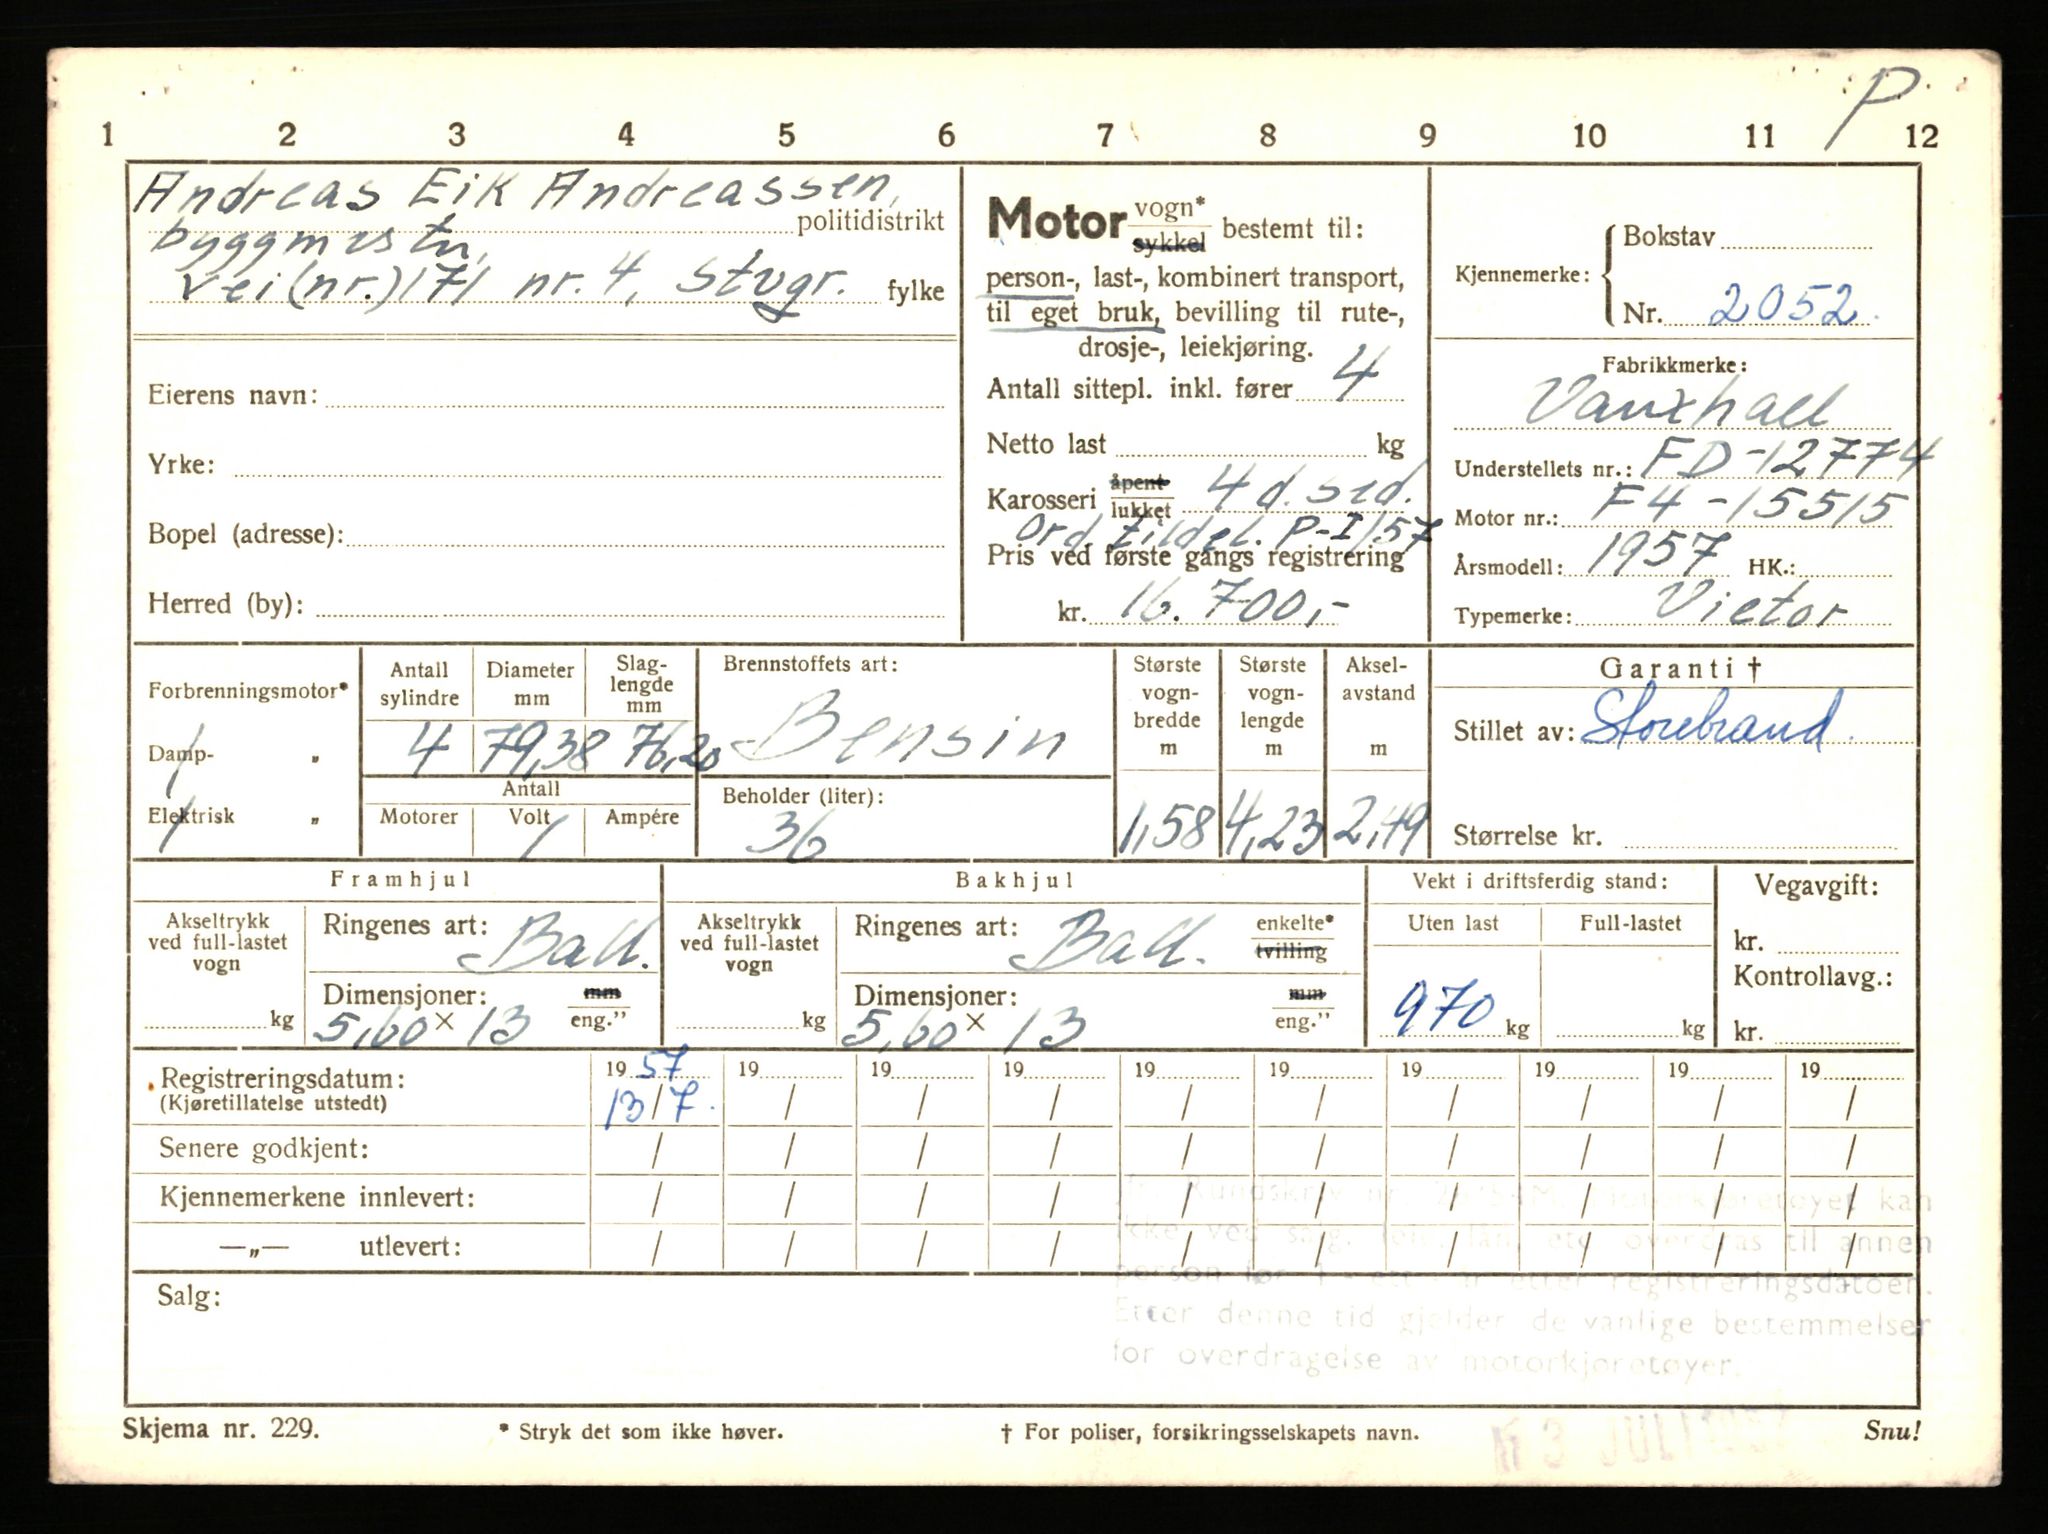 P
1 2 3 4 5 6 7 8 9 10 11 12
Andreas Eik Andreassen,
politidistrikt
byggmester,
vei (nr.) 171 nr. 4, Stvgr. fylke
Eierens navn:
Yrke:
Bopel (adresse):
Herred (by):
Motor vogn* sykkel bestemt til:
person-, last-, kombinert transport,
til eget bruk, bevilling til rute-,
drosje-, leiekjøring.
Antall sittepl. inkl. fører 4
Netto last kg
Karosseri åpent lukket 4 d. sed.
Ord. tildel. P-I/57
Pris ved første gangs registrering
kr. 16.700,-
Kjennemerke: Bokstav
Nr. 2052.
Fabrikkmerke:
Vauxhall
Understellets nr.: FD-12774
Motor nr.: F4-15515
Årsmodell: 1957 HK.:
Typemerke: Victor
Forbrenningsmotor*
Damp- „
Elektrisk „
Antall sylindre
Diameter mm
Slag-lengde mm
4 79,38 76,20
Antall
Motorer Volt Ampére
Brennstoffets art:
Bensin
Beholder (liter):
36
Største vogn-bredde m
Største vogn-lengde m
Aksel-avstand m
1,58 4,23 2,49
Garanti †
Stillet av: Storebrand.
Størrelse kr.
Framhjul
Akseltrykk
ved full-lastet
vogn
kg
Ringenes art: Ball.
Dimensjoner: mm
5,60 x 13 eng."
Bakhjul
Akseltrykk
ved full-lastet
vogn
kg
Ringenes art: Ball. enkelte* tvilling
Dimensjoner: mm
5,60 x 13 eng."
Vekt i driftsferdig stand:
Uten last Full-lastet
970 kg kg
Vegavgift:
kr.
Kontrollavg.:
kr.
Registreringsdatum: 1957 19 19 19 19 19 19 19 19 19
(Kjøretillatelse utstedt) 13/7. / / / / / / / / /
Senere godkjent: / / / / / / / / / /
Kjennemerkene innlevert: / / / / / / / / / /
—„— utlevert: / / / / / / / / / /
Rundskriv nr. Motorkjøretøyet kan
ikke ved salg, leie, lån, etc overdras til annen
person før 1 - ett - år etter registreringsdatoen.
Etter denne tid gjelder de vanlige bestemmelser
for overdragelse av motorkjøretøyer.
Salg:
Skjema nr. 229.
* Stryk det som ikke høver.
† For poliser, forsikringsselskapets navn.
Snu!
13 JULI 1957